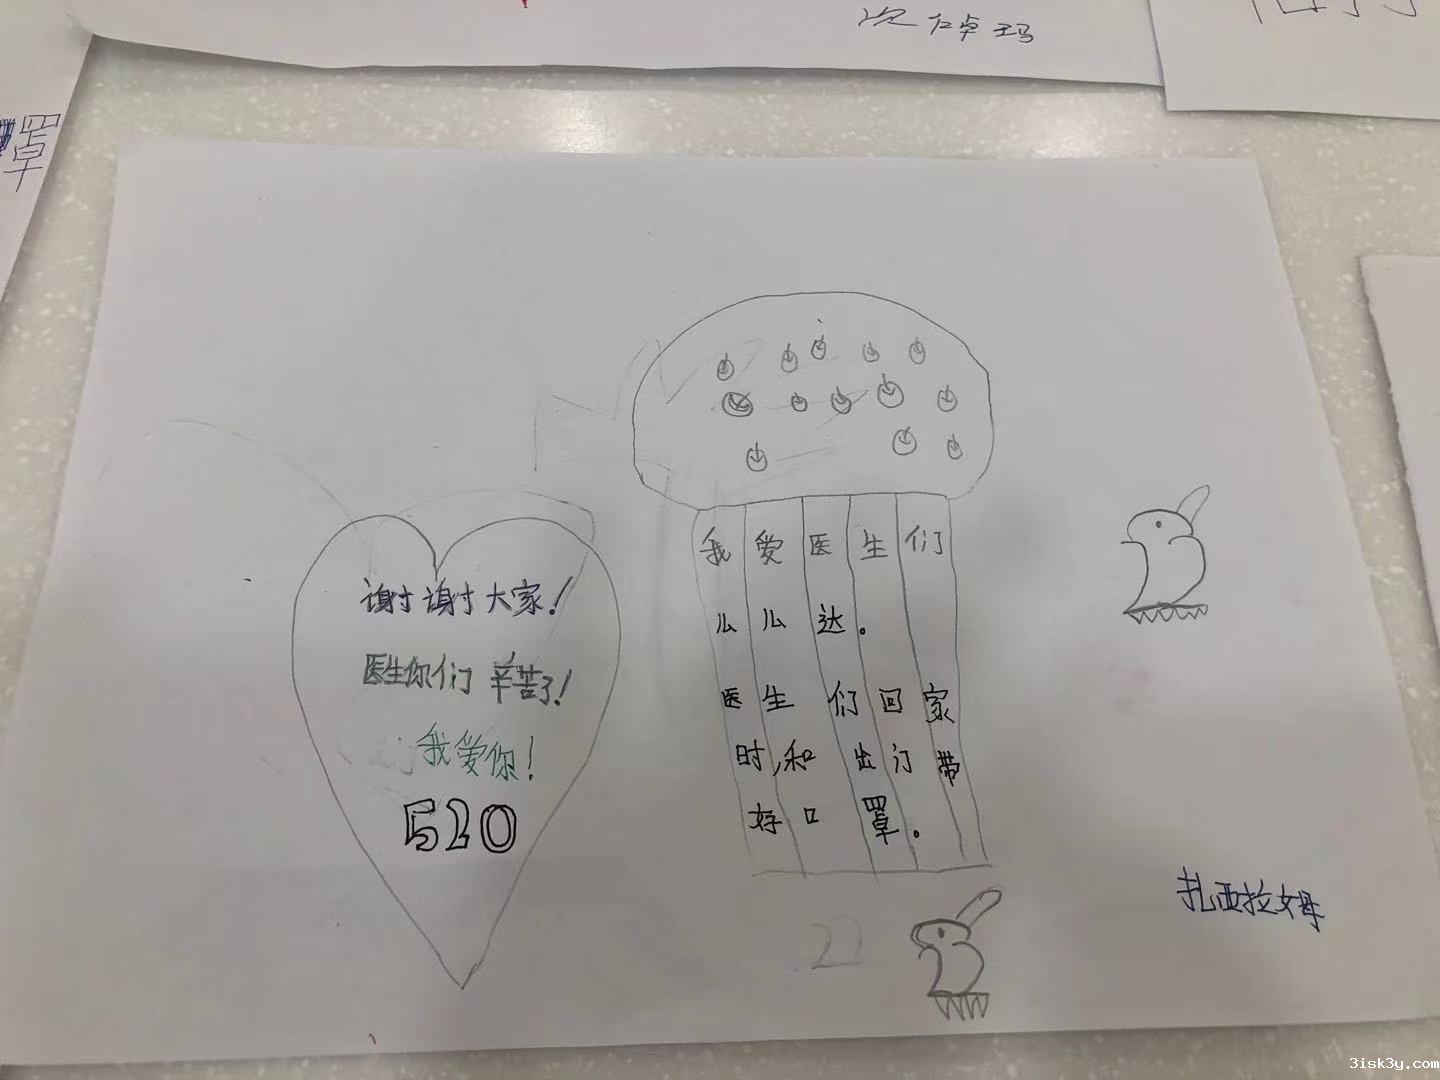 次仁卓玛
罩
谢谢大家！
医生你们 辛苦了！
我爱你！
520
我爱医生们
么么达。
医生们回家
时,和出门带
好口罩。
22
扎西拉姆
3isk3y.com